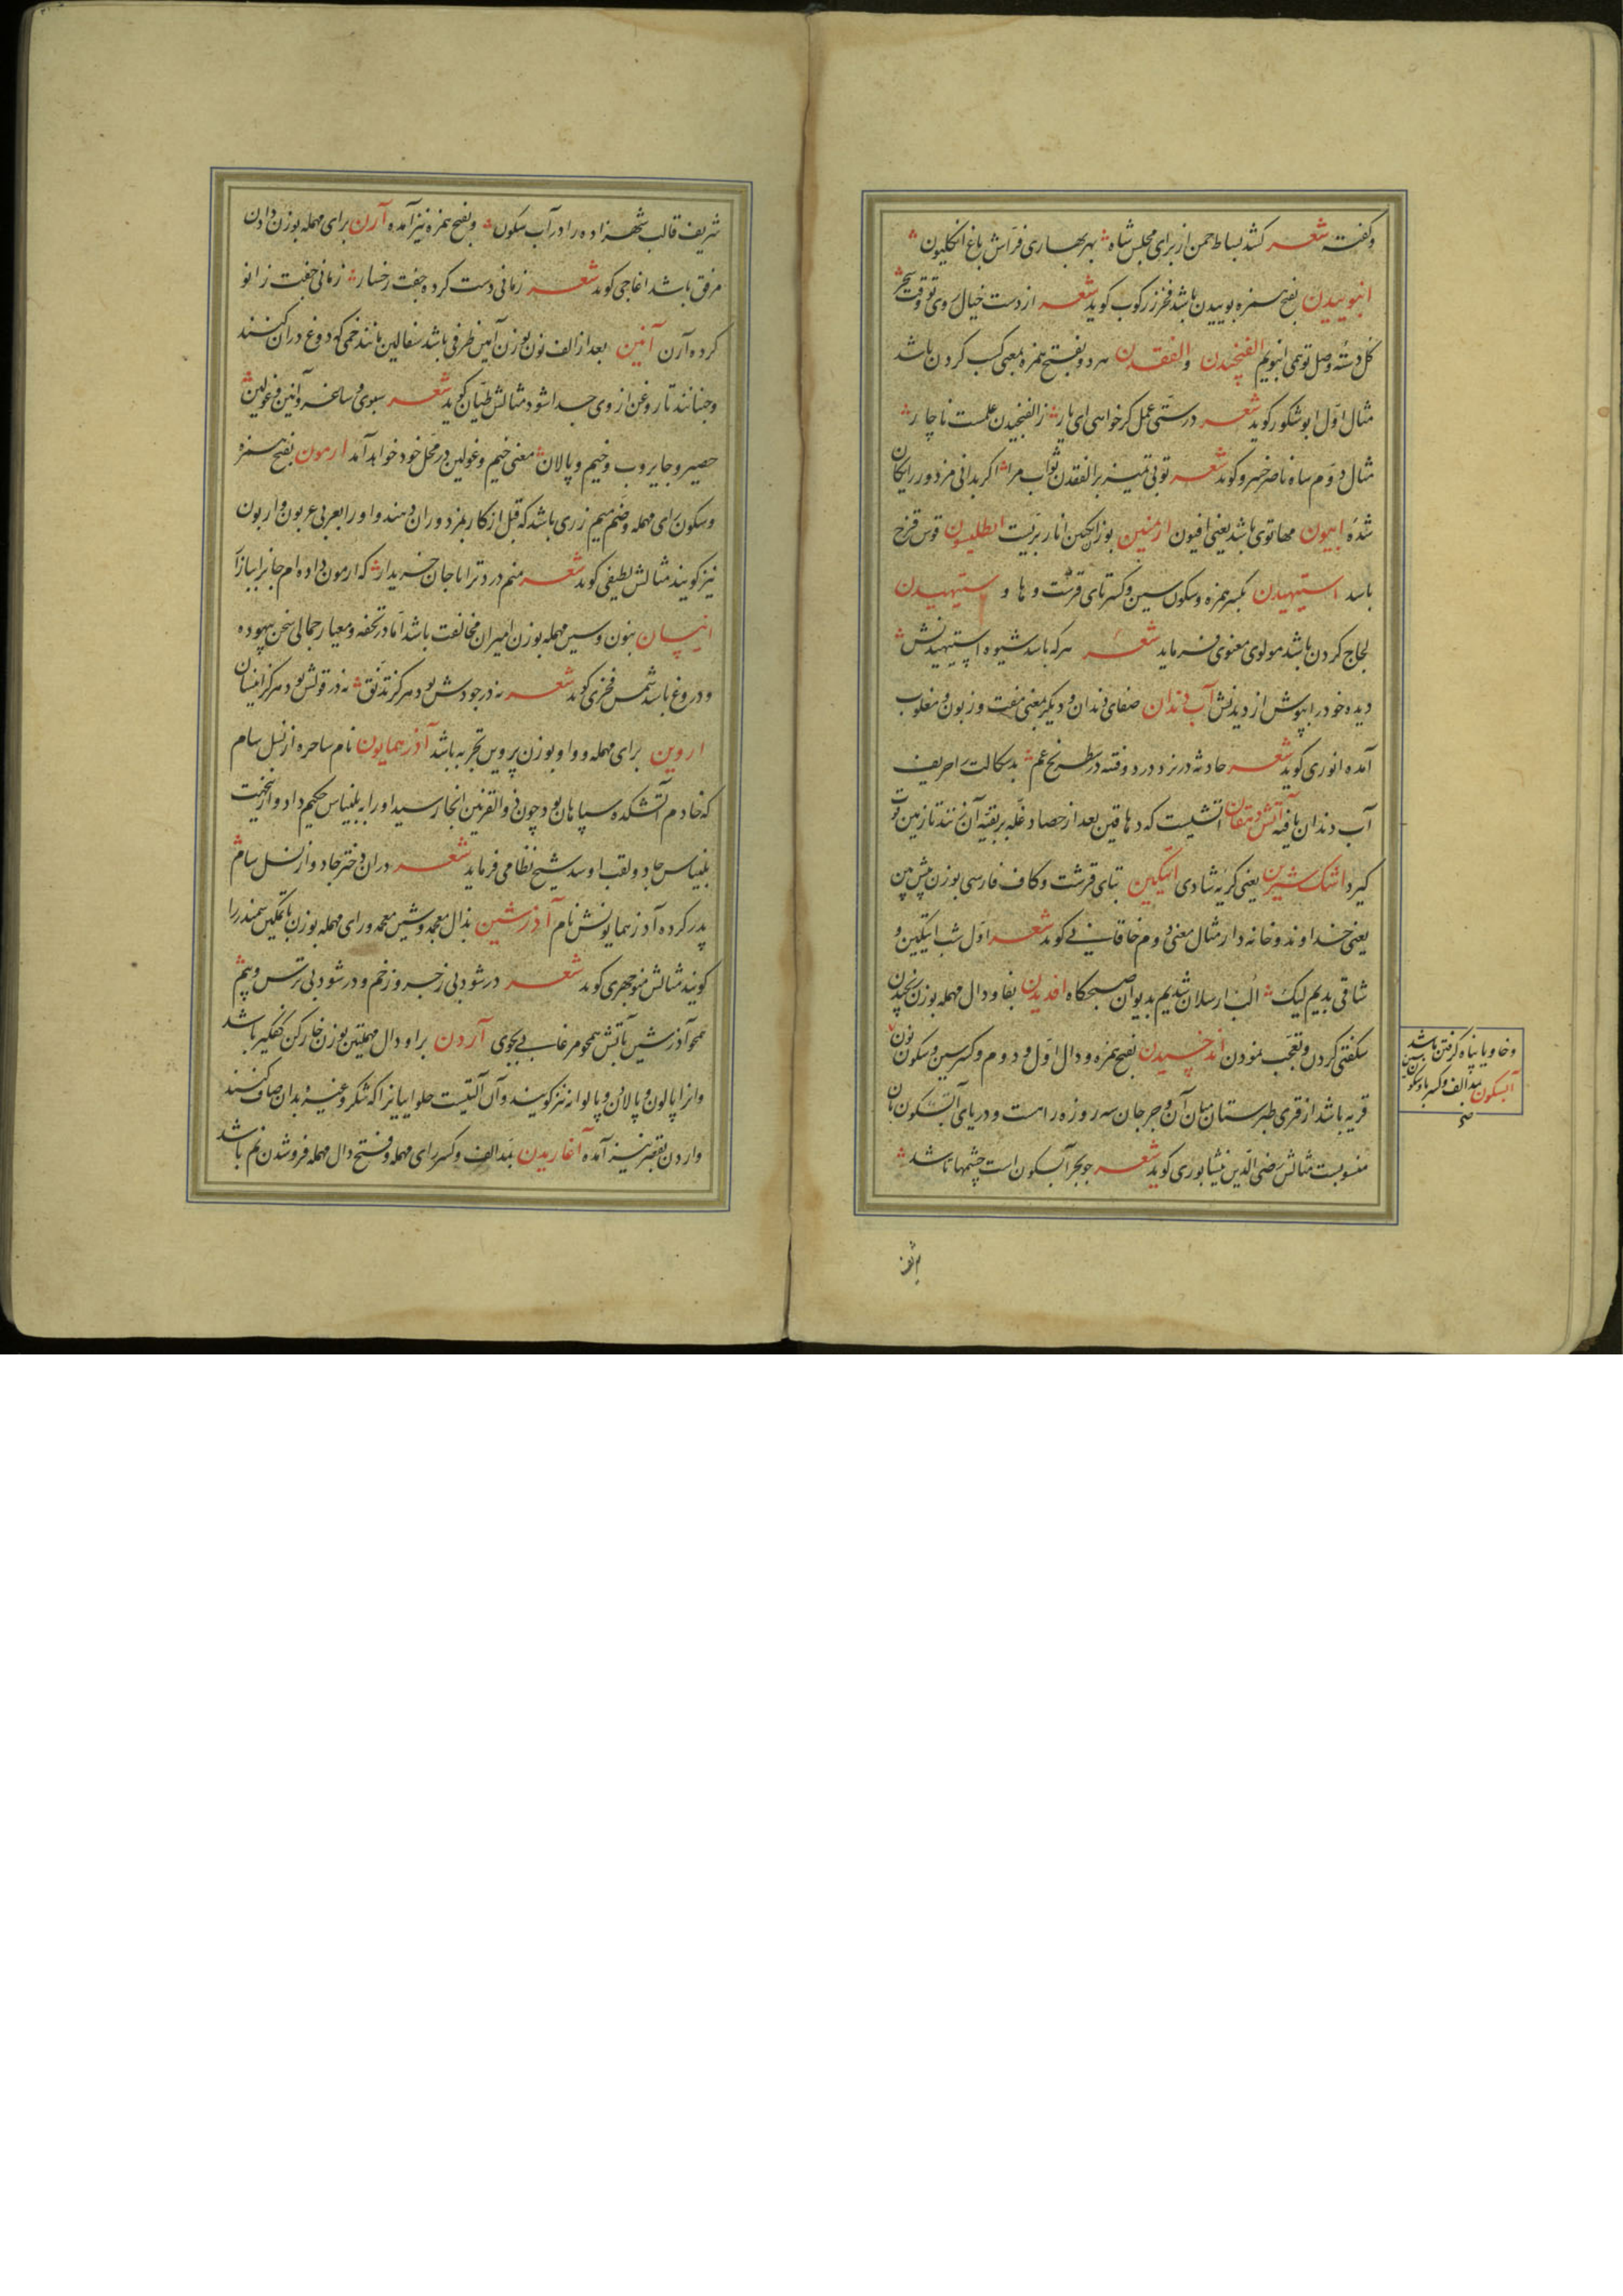 وگفته شعر کشد بساط چمن از برای مجلس شاه بهر بهاری فرّاش باغ انگلیون
انبوییدن بفتح همزه بوییدن باشد فخر زرکوب گوید شعر از دست خیال روی تو وقت سحر
گل دستهٔ وصل تو همی انبویم الفنجیدن والفغدن هردو بفتح همزه بمعنی کسب کردن باشد
مثال اوّل ابوشکور گوید شعر درستی عمل گر خواهی ای یار ز الفنجیدن علمست ناچار
مثال دوم شاه ناصر خسرو گوید شعر تو بی تمیز بر الفغدن ثواب مرا اگر بدانی مزدور رایگان
شدهٔ ابیون مهاتوی باشد یعنی افیون ارمنین بوزن انار برّیست انطلیسون قوس قزح
باشد استیهیدن بکسر همزه وسکون سین وکسر تای قرشت وها و ستیهیدن
لجاج کردن باشد مولوی معنوی فرماید شعر هرکه باشد شیوه استیهیدنش
دیده خود را بپوش از دیدنش آب دندان صفای دندان ودیگر بمعنی مفت وزبون ومغلوب
آمده انوری گوید شعر حادثه در نرد درد وفتنه در شطرنج غم بدسگالت را حریف
آب دندان یافته آتش دهقان آتشیست که دهاقین بعد از حصاد غلّه بر بقیّه آن زنند تا زمین قوت
گیرد اشک شیرین یعنی گریه شادی ایتکین بتای قرشت وکاف فارسی بوزن پیش بین
یعنی خداوند وخانه دار مثال معنی دوم خاقانی گوید شعر اوّل شب ایتکین و
شاقی بدیم لیک الب ارسلان شدیم بدیوان صبحگاه افدیدن بفا ودال مهمله بوزن سنجیدن
شگفتی کردن وتعجب نمودن اندخسیدن بفتح همزه ودال اوّل ودوم وکسر سین وسکون نون
وخا ویا پناه گرفتن باشد
آبسکون بمد الف وکسر با وسکون سین
قریه باشد از قری طبرستان میان آن وجرجان سه روزه راهست ودریای آبسکون بان
منسوبست مثالش رضی الدّین نیشابوری گوید شعر چو بحر آبسکون است چشمها باشد
شریف
شریف قالب شهزاده را در آب سکون وبفتح همزه نیز آمده آرن برای مهمله بوزن دادن
مرفق باشد اغاجی گوید شعر زمانی دست کرده جفت رخسار زمانی جفت زانو
کرده آرن آنین بعد از الف نون بوزن آیین ظرفی باشد سفالین مانند خمی که دوغ در آن کنند
وجنبانند تا روغن از وی جدا شود مثالش طیّان گوید شعر سبوی وساغر وآنین وغولین
حصیر وجایروب وخیم وپالان معنی خیم وغولین در محل خود خواهد آمد ارمون بفتح همزه
وسکون رای مهمله وضم میم زری باشد که قبل از کار بمزدوران دهند واو را بعربی عربون واربون
نیز گویند مثالش لطیفی گوید شعر منم درد ترا با جان خریدار که ارمون داده ام جانرا ببازار
انیسان بنون وسین مهمله بوزن امیران مخالفت باشد امّا در تحفه ومعیار جمالی سخن بیهوده
ودروغ باشد شمس فخری گوید شعر نه در جودش بود هرگز تدنّق نه در قولش بود هرگز انیسان
اروین برای مهمله وواو بوزن پروین تجربه باشد آذر همایون نام ساحره از نسل سام
که خادم آتشکده سپاهان بود چون ذو القرنین آنجا رسید او را به بلیناس حکیم داد واز اینجهت
بلیناس جادو لقب او شد شیخ نظامی فرماید شعر در آن دختر جادو از نسل سام
پدر کرده آذر همایونش نام آذرشین بذال معجمه وشین معجمه ورای مهمله بوزن باتمکین سمندر را
گویند مثالش منوچهری گوید شعر در شود بی زجر وزخم ودر شود بی ترس وبیم
همچو آذرشین بآتش همچو مرغابی بجوی آردن برا ودال مهملتین بوزن خارکن کفگیر باشد
وانرا پالون وپالاون وپالوانه نیز گویند وآن آلتیست حلواییانرا که شکر وغیره بدان صاف کنند
واردن بقصر نیز آمده آغاریدن بمد الف وکسر رای مهمله وفتح دال مهمله فروشدن نم باشد